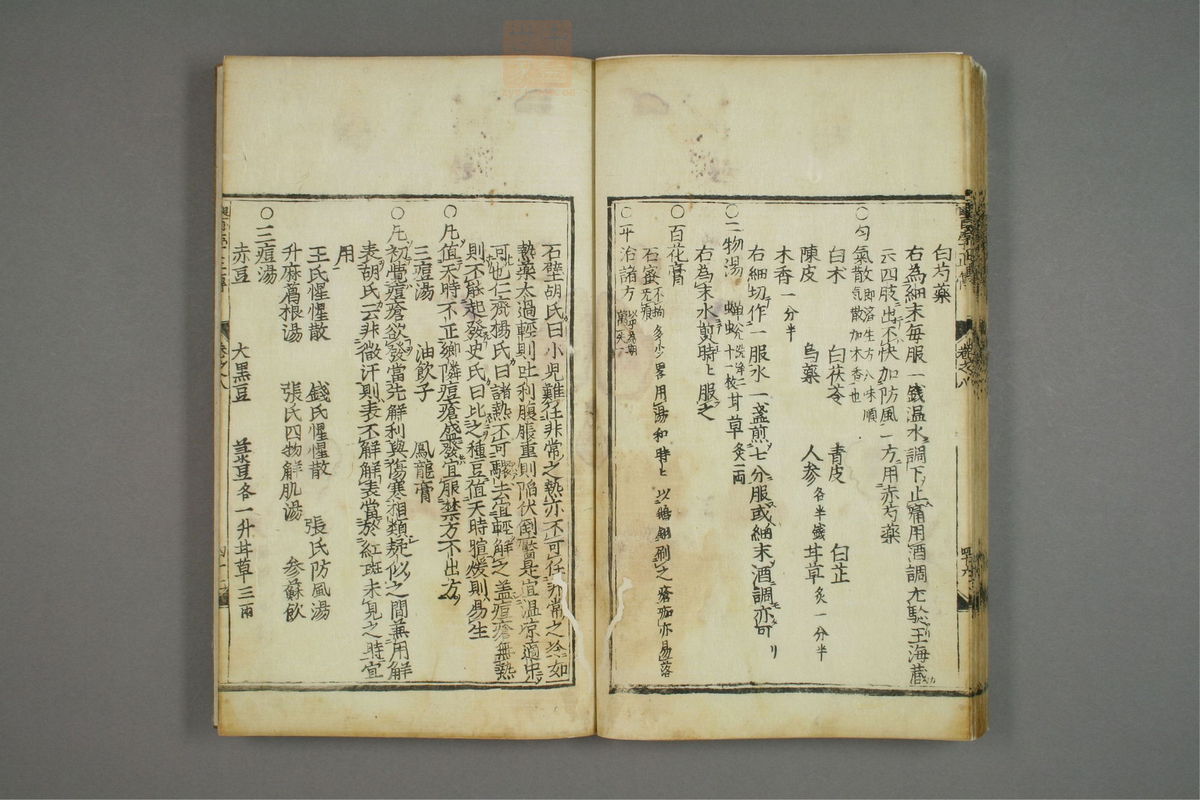 白芍藥
右為細末每服一錢温水調下止痛用酒調尤騐王海藏
云四肢出不快加防風一方用赤芍藥
○匀氣散即濟生方八味順氣散加木香也
白术 白茯苓 青皮 白芷
陳皮 烏藥 人参各半錢 甘草炙一分半
木香一分半
右細切作一服水一盞煎七分服或細末酒調亦可
○二物湯 蟬蛻洗淨二十一枚 甘草炙一兩
右為末水煎時〻服之
○百花膏
石蜜不拘多少畧用湯和時〻以鵝翎刷之瘡痂亦易落
○平治諸方
石壁胡氏曰小児難任非常之熱亦不可任非常之冷如
熱藥太過輕則吐利腹脹重則陥伏倒靨是宜温凉適中
可也仁齋楊氏曰諸熱不可驟去宜輕解之盖痘瘡無熱
則不能起發史氏曰比之種豆值天時暄煖則易生
○凡值天時不正鄉隣痘瘡盛發宜服禁方不出方
三痘湯 油飲子 鳳龍膏
○凡初覺痘瘡欲發當先解利與傷寒相類疑似之間兼用解
表胡氏云非微汗則表不解解表當於紅斑未見之時宜
用
王氏惺惺散 錢氏惺惺散 張氏防風湯
升麻葛根湯 張氏四物解肌湯 参蘇飲
○三痘湯
赤豆 大黑豆 菉豆各一升 甘草三兩